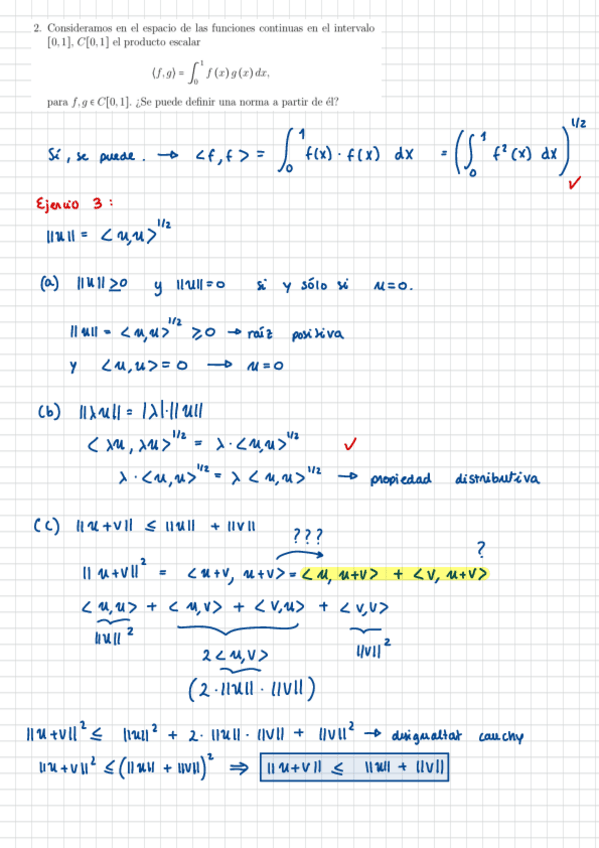 2. Consideramos en el espacio de las funciones continuas en el intervalo
[0, 1], C[0, 1] el producto escalar
⟨f, g⟩ = ∫₀¹ f(x)g(x)dx,
para f, g ϵ C[0, 1]. ¿Se puede definir una norma a partir de él?
Sí, se puede. → <f,f> = ∫₀¹ f(x)·f(x) dx = (∫₀¹ f²(x) dx)^1/2 ✓
Ejercio 3:
||u|| = <u,u>^1/2
(a) ||u|| ≥0 y ||u||=0 si y sólo si u=0.
||u|| = <u,u>^1/2 ≥0 → raíz positiva
y <u,u>=0 → u=0
(b) ||λu|| = |λ|·||u||
<λu, λu>^1/2 = λ·<u,u>^1/2 ✓
λ·<u,u>^1/2 = λ <u,u>^1/2 → propiedad distributiva
(c) ||u+v|| ≤ ||u|| + ||v||
??? ?
||u+v||² = <u+v, u+v> = <u, u+v> + <v, u+v>
<u,u> + <u,v> + <v,u> + <v,v>
||u||² 2<u,v> ||v||²
(2·||u||·||v||)
||u+v||² ≤ ||u||² + 2·||u||·||v|| + ||v||² → desigualtat cauchy
||u+v||² ≤ (||u|| + ||v||)² ⇒ ||u+v|| ≤ ||u|| + ||v||